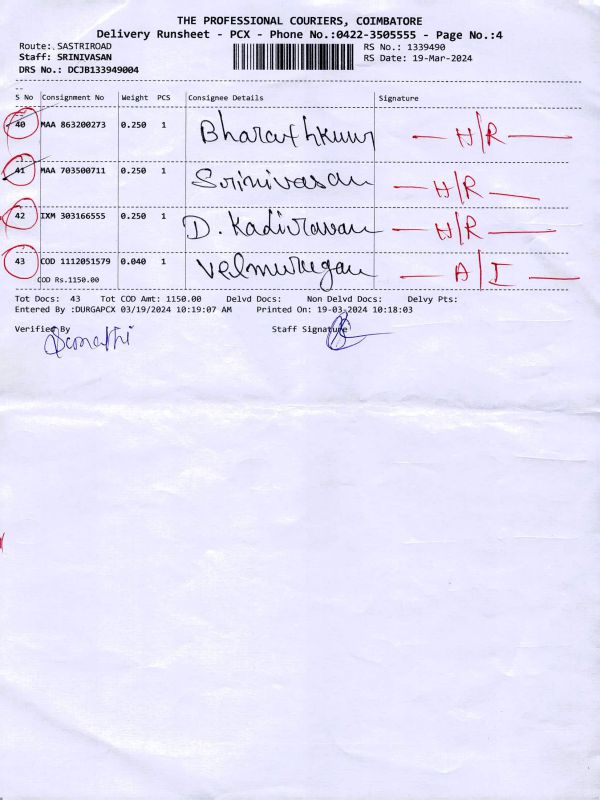 THE PROFESSIONAL COURIERS, COIMBATORE
Delivery Runsheet - PCX - Phone No.:0422-3505555 - Page No.:4
Route: SASTRIROAD RS No.: 1339490
Staff: SRINIVASAN RS Date: 19-Mar-2024
DRS No.: DCJB133949004
S No Consignment No Weight PCS Consignee Details Signature
40 MAA 863200273 0.250 1 Bharathkumr H/R
41 MAA 703500711 0.250 1 Srinivasan H/R
42 IXM 303166555 0.250 1 D. Kadiravan H/R
43 COD 1112051579 0.040 1 Velmurugan A/I
COD Rs.1150.00
Tot Docs: 43 Tot COD Amt: 1150.00 Delvd Docs: Non Delvd Docs: Delvy Pts:
Entered By :DURGAPCX 03/19/2024 10:19:07 AM Printed On: 19-03-2024 10:18:03
Verified By Staff Signature